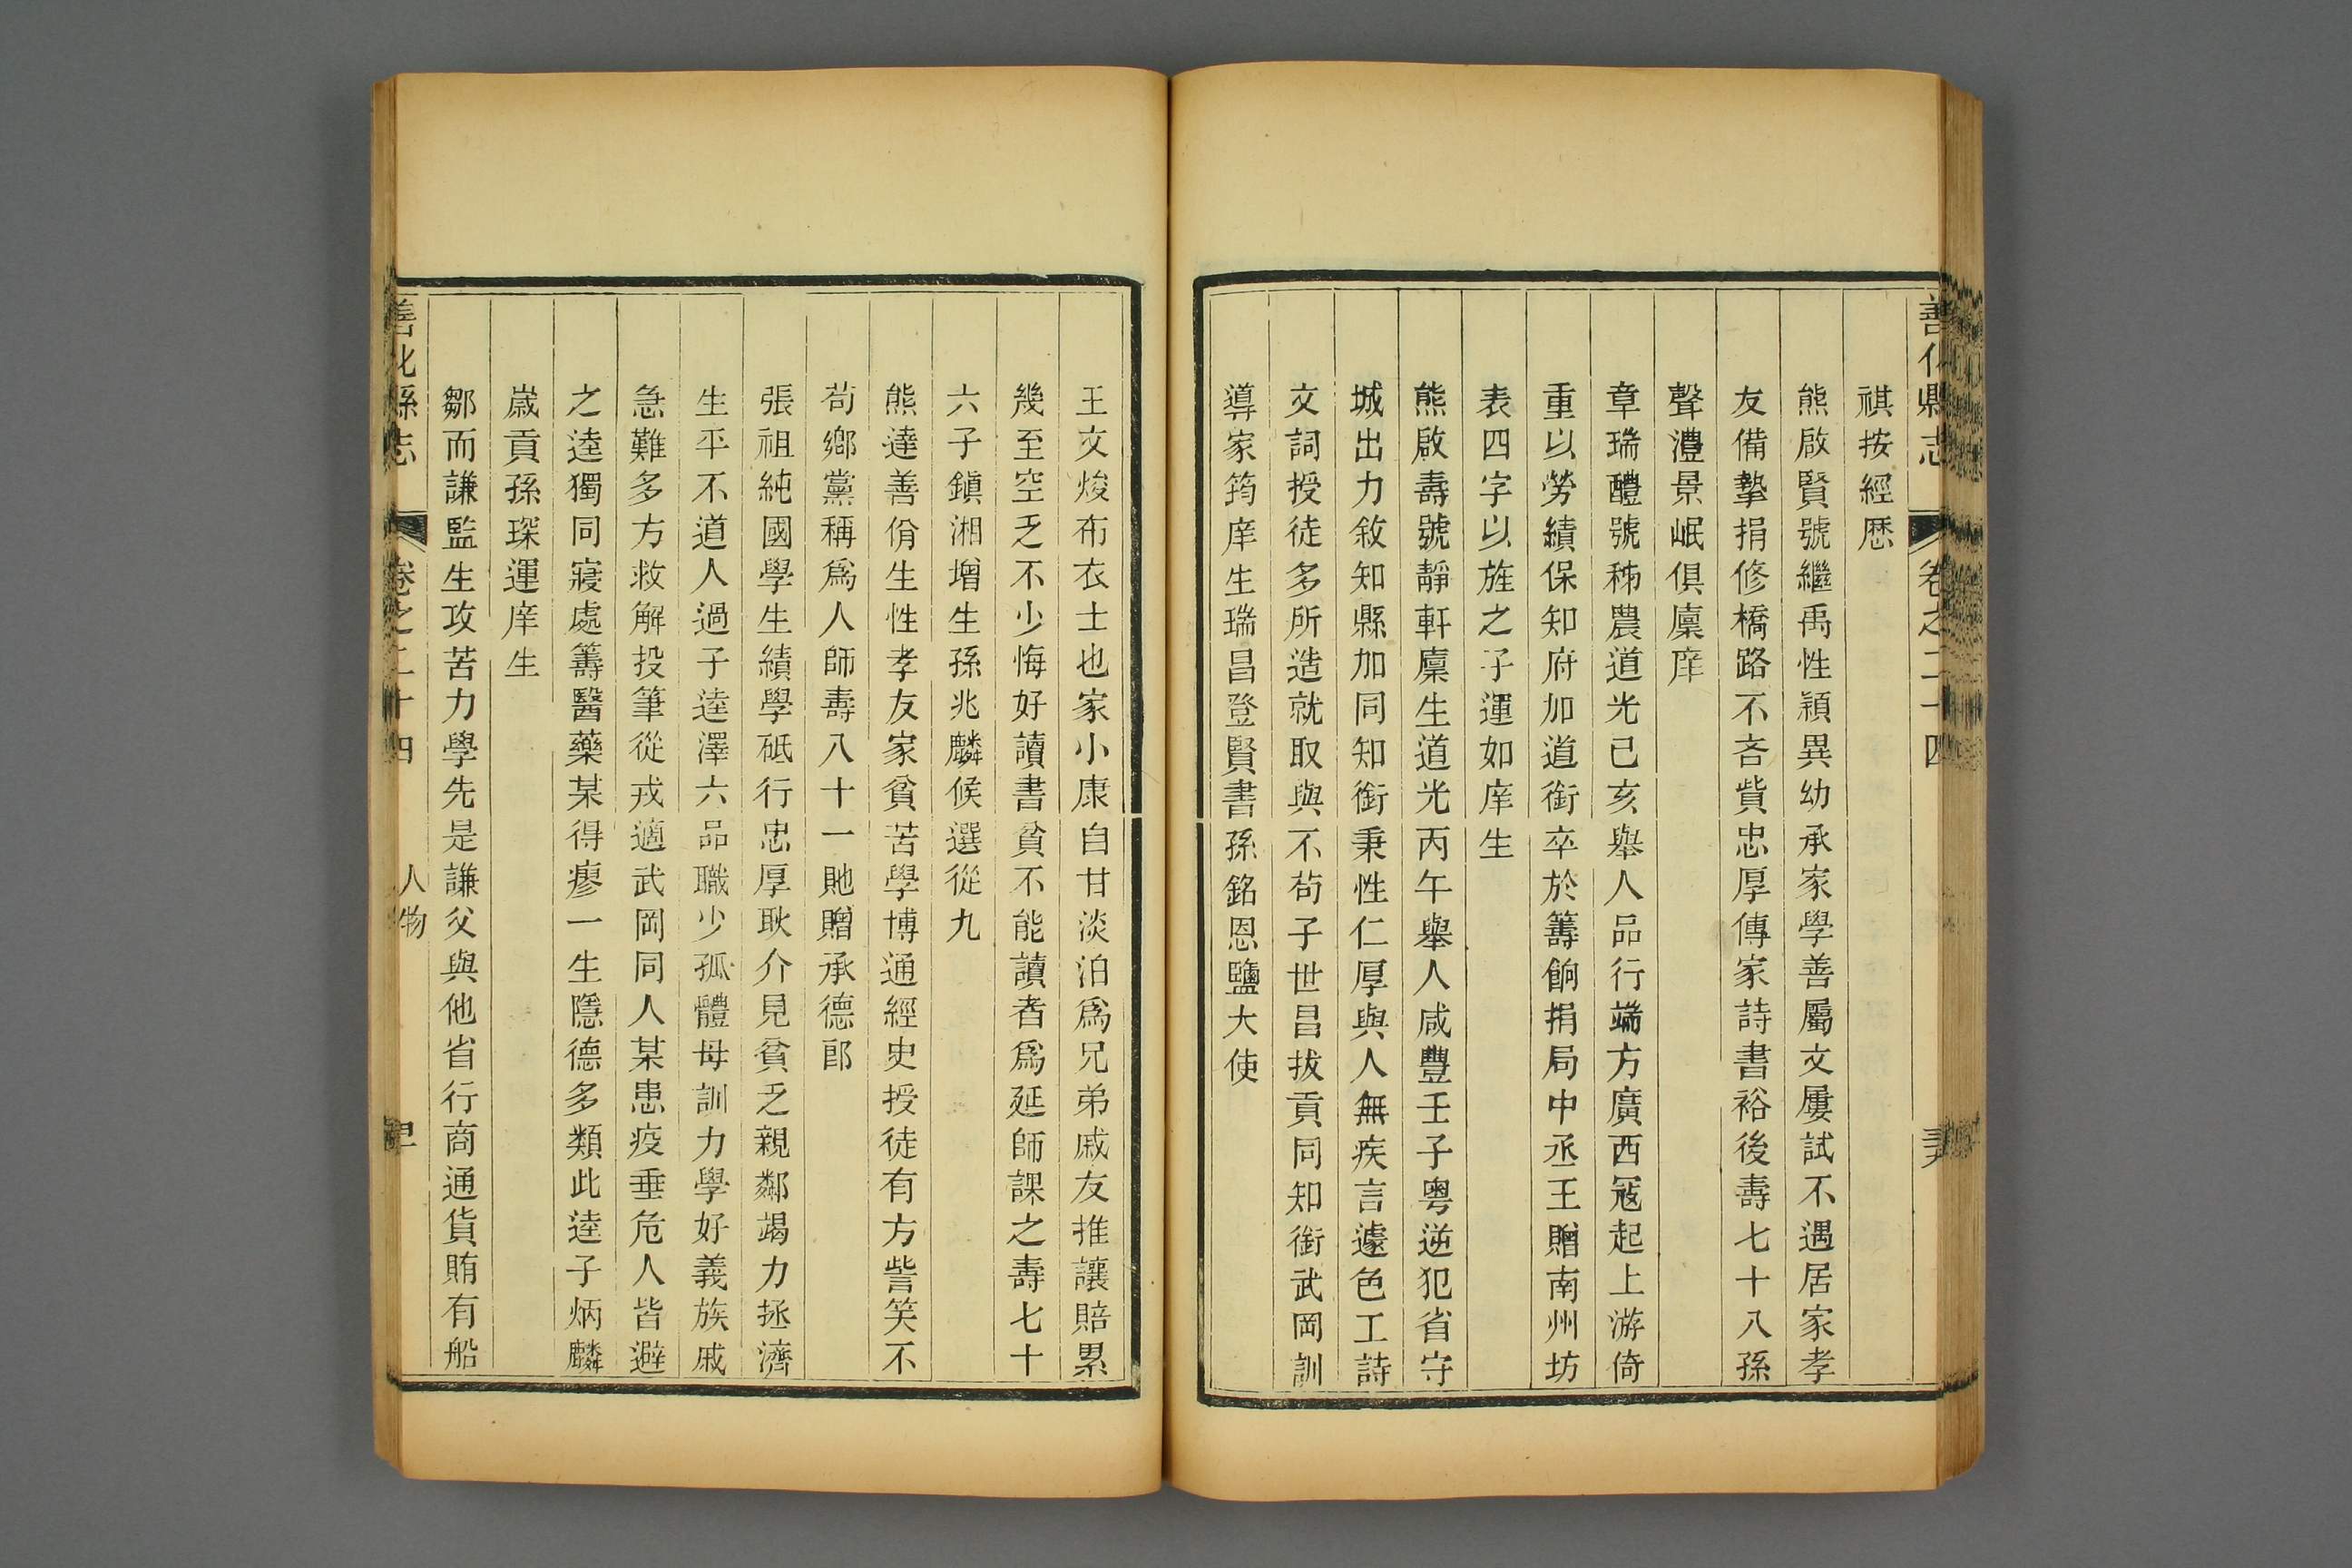 善化縣志
卷之二十四
祺按經歴
熊啟賢號繼禹性穎異幼承家學善屬文屢試不遇居家孝
友備摯捐修橋路不吝貲忠厚傳家詩書裕後壽七十八孫
聲澧景岷俱廩庠
章瑞醴號秭農道光己亥舉人品行端方廣西冦起上游倚
重以勞績保知府加道銜卒於籌餉捐局中丞王贈南州坊
表四字以旌之子運如庠生
熊啟壽號靜軒廩生道光丙午舉人咸豐壬子粤逆犯省守
城出力敘知縣加同知銜秉性仁厚與人無疾言遽色工詩
文詞授徒多所造就取與不苟子世昌拔貢同知銜武岡訓
導家筠庠生瑞昌登賢書孫銘恩鹽大使
王文焌布衣士也家小康自甘淡泊爲兄弟戚友推讓賠累
幾至空乏不少悔好讀書貧不能讀者爲延師課之壽七十
六子鎮湘增生孫兆麟候選從九
熊達善佾生性孝友家貧苦學博通經史授徒有方訾笑不
苟鄉黨稱爲人師壽八十一貤贈承德郎
張祖純國學生績學砥行忠厚耿介見貧乏親鄰竭力拯濟
生平不道人過子逵澤六品職少孤體母訓力學好義族戚
急難多方救解投筆從戎適武岡同人某患疫垂危人皆避
之逵獨同寢處籌醫藥某得瘳一生隱德多類此逵子炳麟
歲貢孫琛運庠生
鄒而謙監生攻苦力學先是謙父與他省行商通貨賄有船
善化縣志
卷之二十四
人物